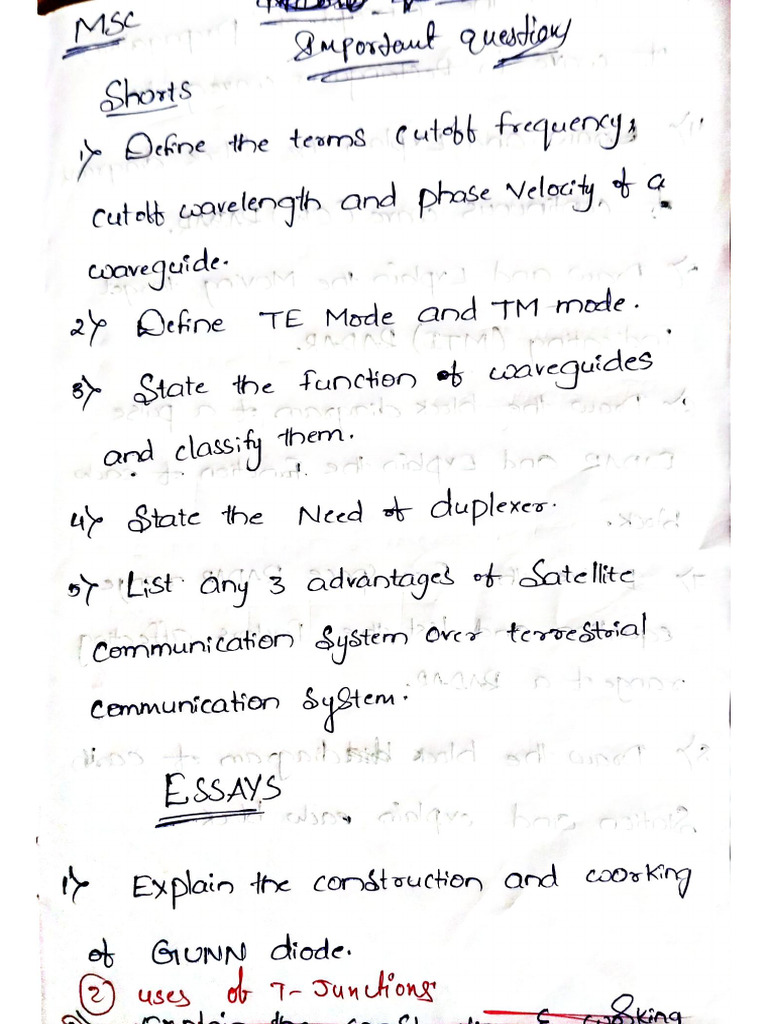 MSC
Important question
Shorts
1) Define the terms cutoff frequency,
cutoff wavelength and phase velocity of a
waveguide.
2) Define TE Mode and TM mode.
3) State the function of waveguides
and classify them.
4) State the Need of duplexer.
5) List any 3 advantages of Satellite
Communication System over terrestrial
Communication System.
ESSAYS
1) Explain the construction and working
of GUNN diode.
② uses of T-Junctions
Explain the & working